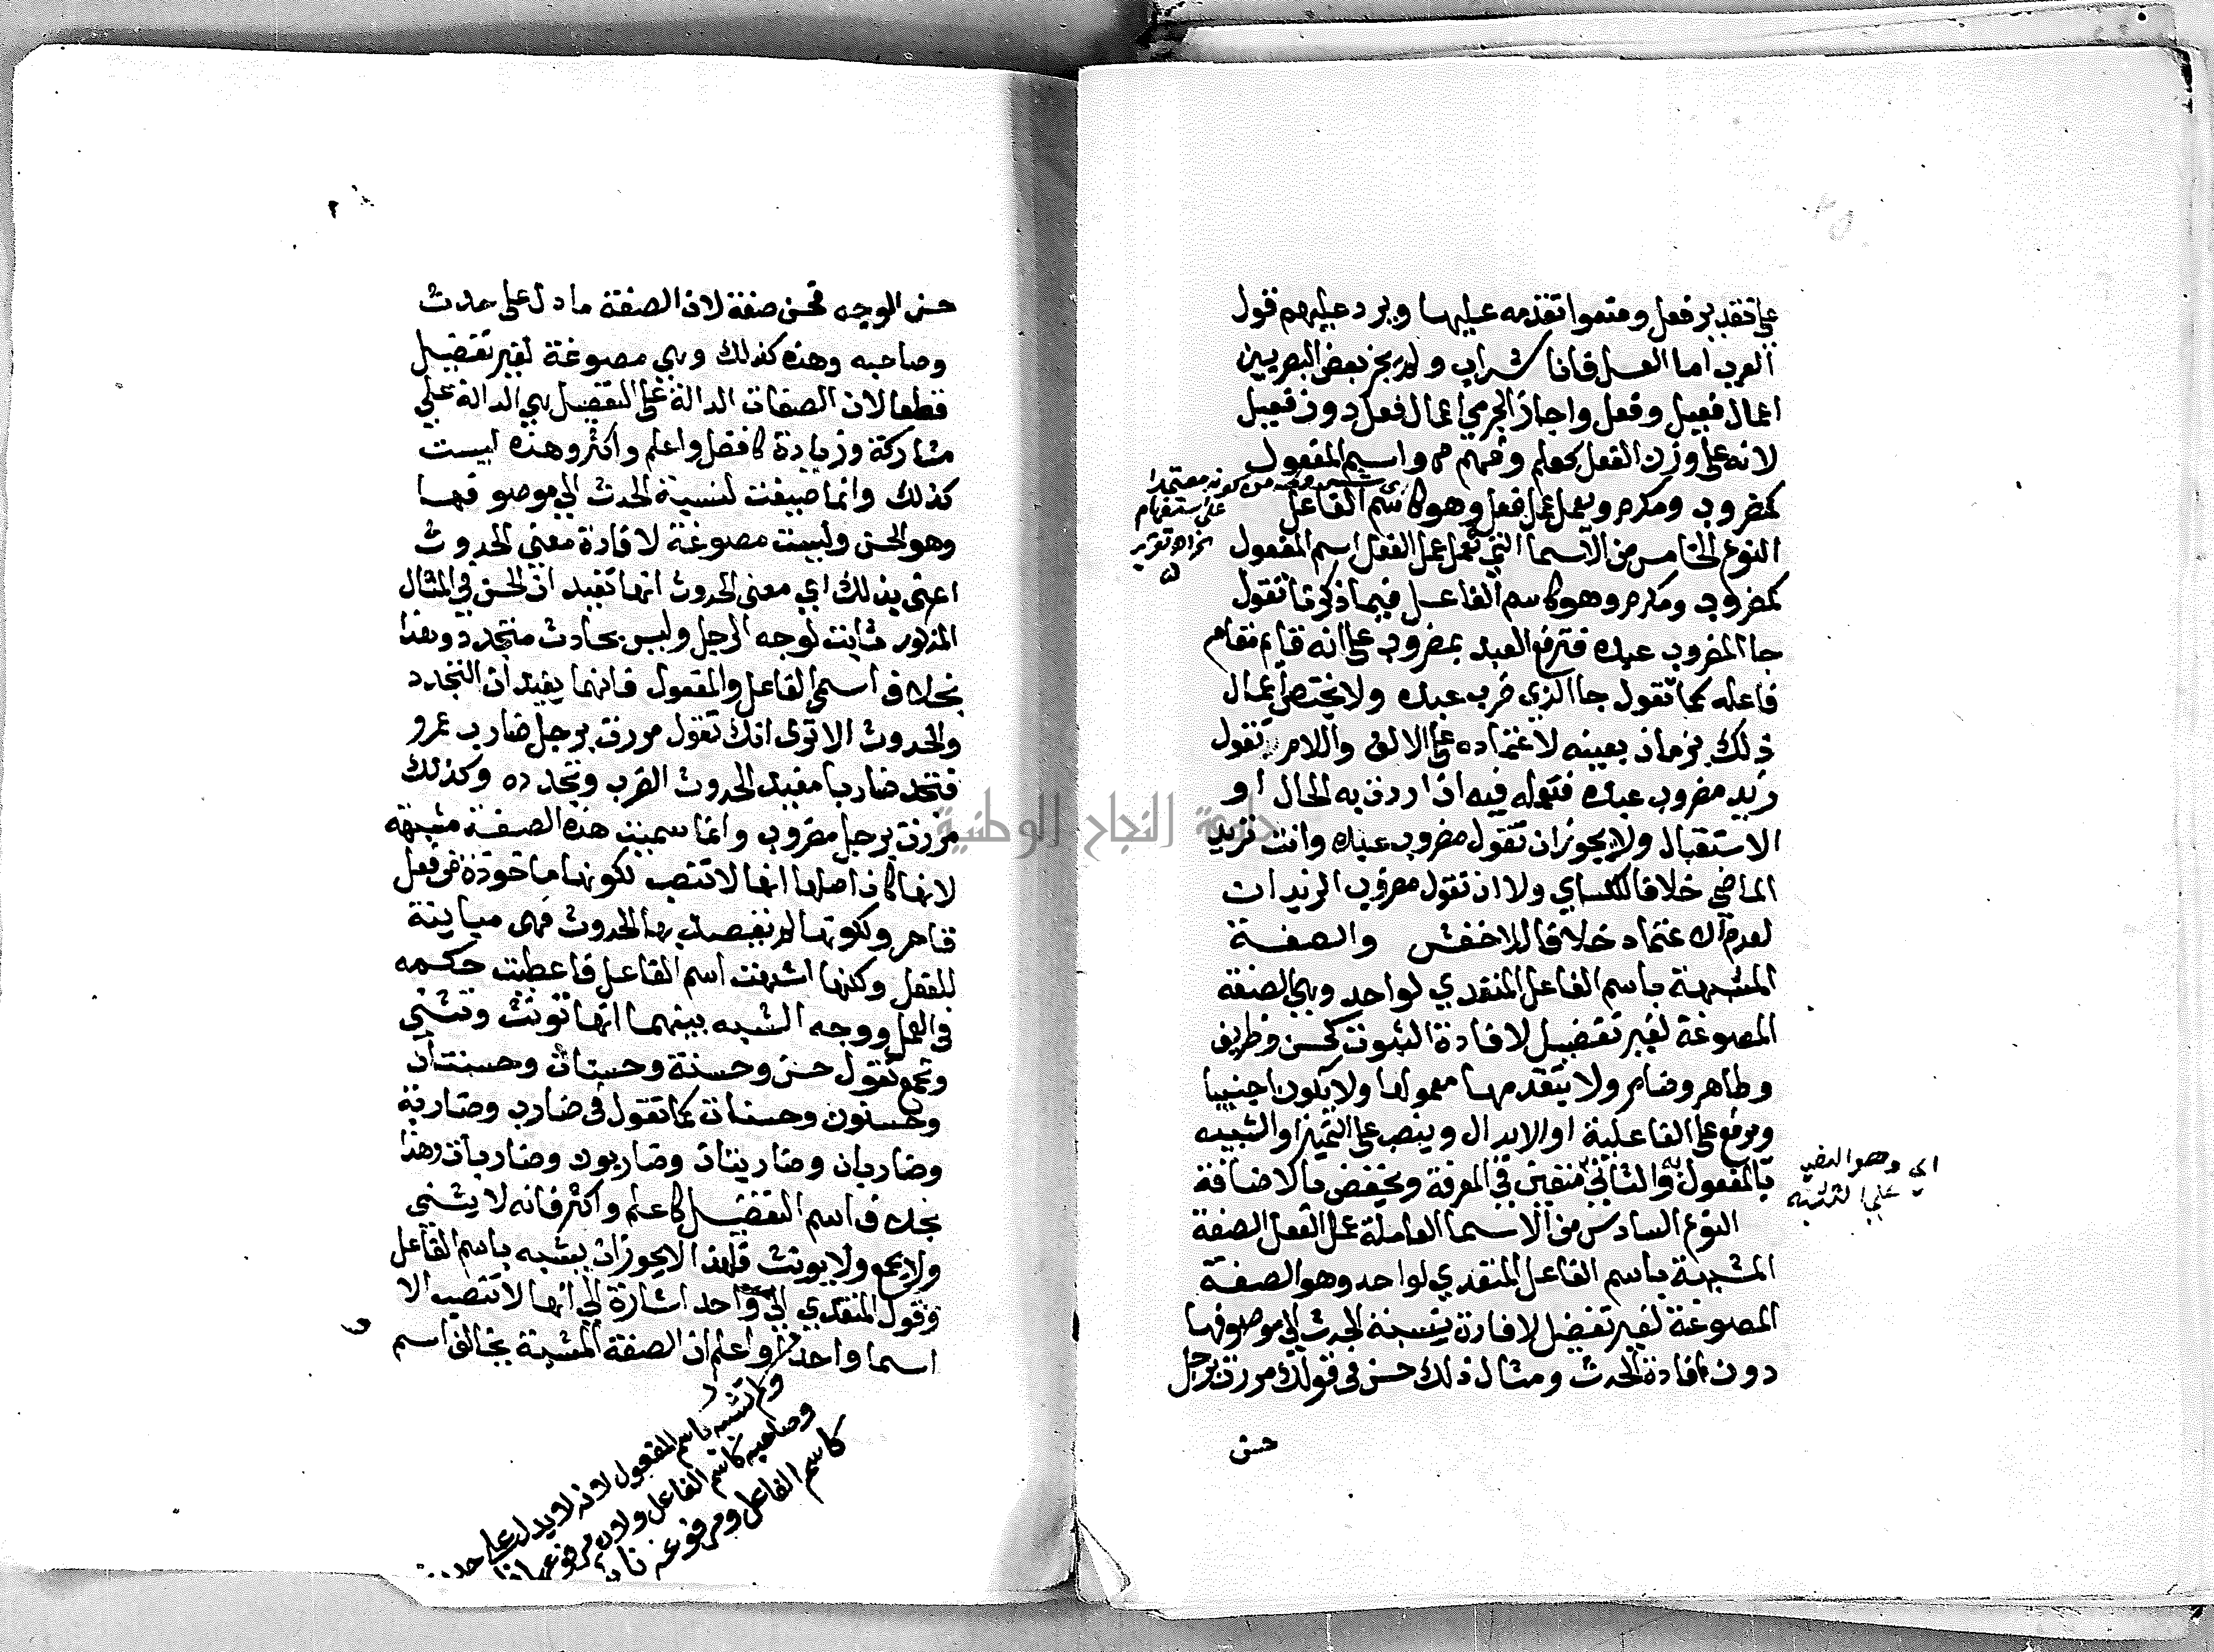 على تقدير فعل ومنعوا تقدمه عليها ويرد عليهم قول
العرب اما العسل فانا شراب ولم يجز بعض البصريين
اعمال فعيل وفعل واجاز الجرمي اعمال فعل دون فعيل
لانه على وزن الفعل كعلم وفهم ص واسم المفعول
كمضروب ومكرم ويعمل عمل فعله وهو كاسم الفاعل
النوع الخامس من الاسما التي تعمل عمل الفعل اسم المفعول
كمضروب ومكرم وهو كاسم الفاعل فيما ذكرنا تقول
جا المضروب عبده فترفع العبد بمضروب على انه قائم مقام
فاعله كما تقول جا الذي ضرب عبده ولا يختص اعمال
ذلك بزمان بعينه لاعتماده على الالف واللام تقول
زيد مضروب عبده فتعمله فيه اذا اردت به الحال او
الاستقبال ولا يجوز ان تقول مضروب عبده وانت تريد
الماضي خلافا للكساي ولا ان تقول مضروب الزيدان
لعدم الاعتماد خلافا للاخفش والصفة
المشبهة باسم الفاعل المتعدي لواحد وهي الصفة
المصوغة لغير تفضيل لافادة الثبوت كحسن وظريف
وطاهر وضامر ولا يتقدمها معمولها ولا يكون اجنبيا
ويرفع على الفاعلية او الابدال وينصب على التمييز او التشبيه
بالمفعول به والثاني متعين في المعرفة ويخفض بالاضافة
النوع السادس من الاسما العاملة عمل الفعل الصفة
المشبهة باسم الفاعل المتعدي لواحد وهو الصفة
المصوغة لغير تفضيل لافادة نسبة الحدث الي موصوفها
دون افادة الحدث ومثال ذلك حسن في قولك مررت برجل
حسن
من كونه معتمدا
على استفهام
اي وهو النصب
على التشبيه
حسن الوجه فحسن صفة لان الصفة ما دل على حدث
وصاحبه وهذه كذلك وهي مصوغة لغير تفضيل
قطعا لان الصفات الدالة على التفضيل هي الدالة على
مشاركة وزيادة كافضل واعلم واكثر وهذه ليست
كذلك وانما صيغت لنسبة الحدث الي موصوفها
وهو الحسن وليست مصوغة لافادة معني الحدوث
اعني بذلك اي معنى الحدوث انها تفيد ان الحسن في المثال
المذكور ثابت لوجه الرجل وليس بحادث متجدد وهذا
بخلاف اسمي الفاعل والمفعول فانهما يفيدان التجدد
والحدوث الا ترى انك تقول مررت برجل ضارب عمرو
فتجد ضاربا مفيدا لحدوث الضرب وتجدده وكذلك
مررت برجل مضروب وانما سميت هذه الصفة مشبهة
لانها كان اصلها انها لا تنصب لكونها ماخوذة من فعل
قاصر ولكونها لم يقصد بها الحدوث فهي مباينة
للفعل ولكنها اشبهت اسم الفاعل فاعطيت حكمه
في العمل ووجه الشبه بينهما انها تونث وتثني
وتجمع تقول حسن وحسنة وحسنان وحسنتان
وحسنون وحسنات كما تقول في ضارب وضاربة
وضاربان وضاربتان وضاربون وضاربات وهذا
بخلاف اسم التفضيل كاعلم واكثر فانه لا يثني
ولا يجمع ولا يونث فلهذا لا يجوز ان يشبه باسم الفاعل
وقول المتعدي الي واحد اشارة الي انها لا تنصب الا
اسما واحدا واعلم ان الصفة المشبهة تخالف اسم
ولم تشبه باسم المفعول لانه لا يدل على حدث
وصاحبه كاسم الفاعل ولان مرفوعها
كاسم الفاعل ومرفوعه
جامعة النجاح الوطنية